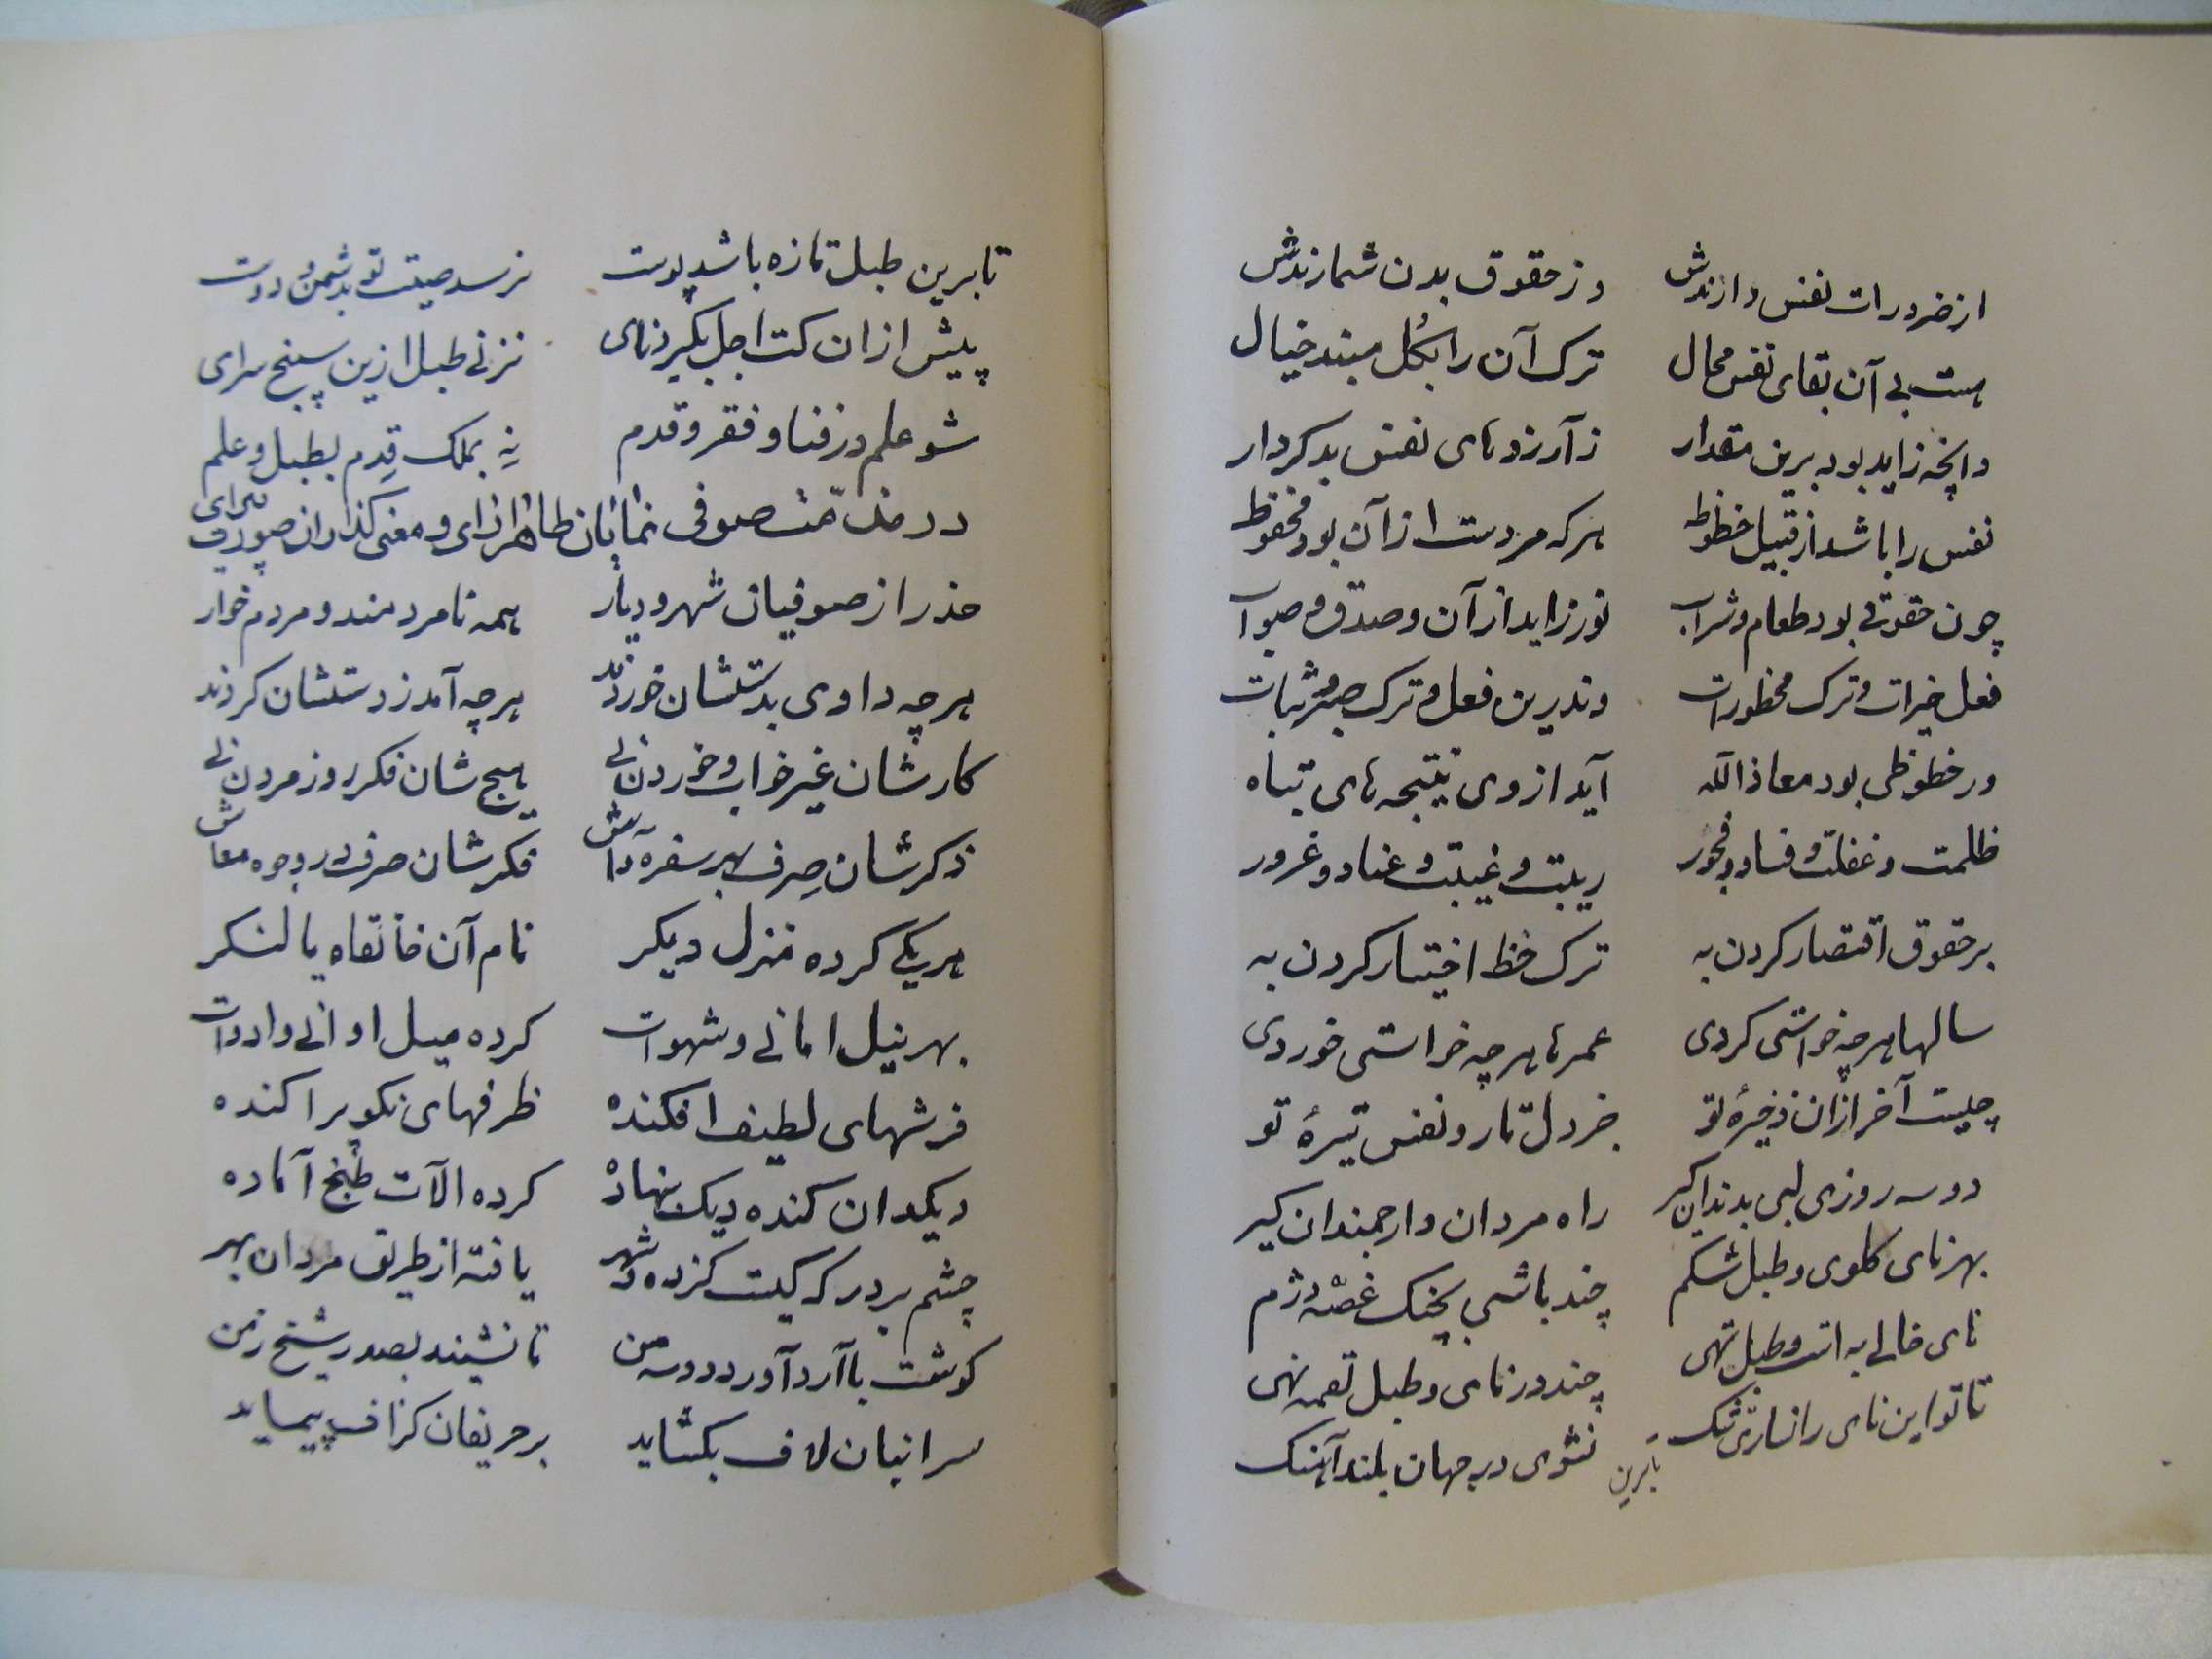 از ضرورات نفس دارندش وز حقوق بدن شمارندش
هست بی آن بقای نفس محال ترک آن را بکُل مبند خیال
وانچه زاید بود برین مقدار ز آرزوهای نفس بدکردار
نفس را باشد از قبیل حظوظ هر که مردست از آن بود محفوظ
چون حقوقی بود طعام و شراب نور زاید از آن و صدق و صواب
فعل خیرات و ترک محظورات وندرین فعل و ترک صبر و ثبات
ور حظوظی بود معاذ الله آید از وی نتیجه های تباه
ظلمت و غفلت و فساد و فجور ریبت و غیبت و عناد و غرور
بر حقوق اقتصار کردن به ترک حظ اختیار کردن به
سالها هر چه خواستی کردی عمرها هر چه خواستی خوردی
چیست آخر ازان ذخیرهٔ تو جز دل تار و نفس تیرهٔ تو
دو سه روزی لبی بدندان گیر راه مردان و ارجمندان گیر
بهر نای گلوی و طبل شکم چند باشی بچنگ غصّه دژم
نای خالی به است و طبل تهی چند در نای و طبل لقمه نهی
تا تو این نای را نسازی تنگ نشوی در جهان بلند آهنگ
تا برین
تا برین طبل تازه باشد پوست نرسد صیت تو بدشمن و دوست
پیش ازان کت اجل بگیرد نای نزنی طبل ازین سپنج سرای
شو علم در فنا و فقر و قدم نه بملک قِدم بطبل و علم
در مذمّت صوفی نمایان ظاهر آرای و معنی گذاران صورت سرای
حذر از صوفیان شهر و دیار همه نامردمند و مردم خوار
هر چه دادی بدستشان خوردند هر چه آمد ز دستشان کردند
کارشان غیر خواب و خوردن نی هیچ شان فکر روز مردن نی
ذکرشان صرف بهر سفره و آش فکرشان صرف در وجوه معاش
هر یکی کرده منزل دیگر نام آن خانقاه یا لنگر
بهر نیل امانی و شهوات کرده میل اوانی و ادوات
فرشهای لطیف افکنده ظرفهای نکو پراکنده
دیگدان کنده دیگ بنهاده کرده الآت طبخ آماده
چشم بر در که کیست کز ده و شهر یافته از طریق مردان بهر
گوشت یا آرد آورد دو سه من تا نشیند بصدر شیخ زمن
سر انبان لاف بگشاید بر حریفان گزاف پیماید